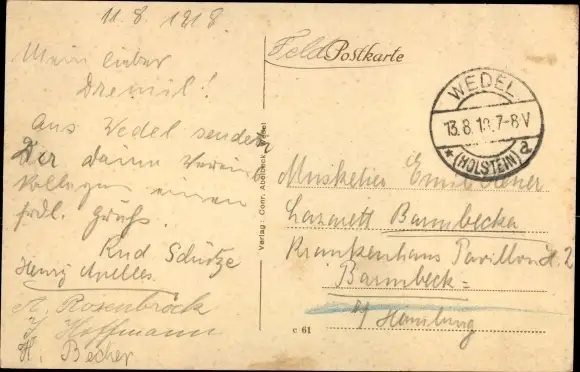 11.8.1918
Mein lieber
! 
Aus Wedel sendet
Dir deine Verein
Kollegen einen
frdl. Gruß.
Rud Schütze
Henry Apelles
A. Rosenbrock
Hoffmann
H. Becher
Verlag: Conr. Abelbeck, Wedel
Feld Postkarte
WEDEL
13.8.18.7-8V
* (HOLSTEIN) a
Musketier Emil
Lazarett Barmbecka
Krankenhaus Pavillon H. 2
Barmbeck =
b/ Hamburg
c 61